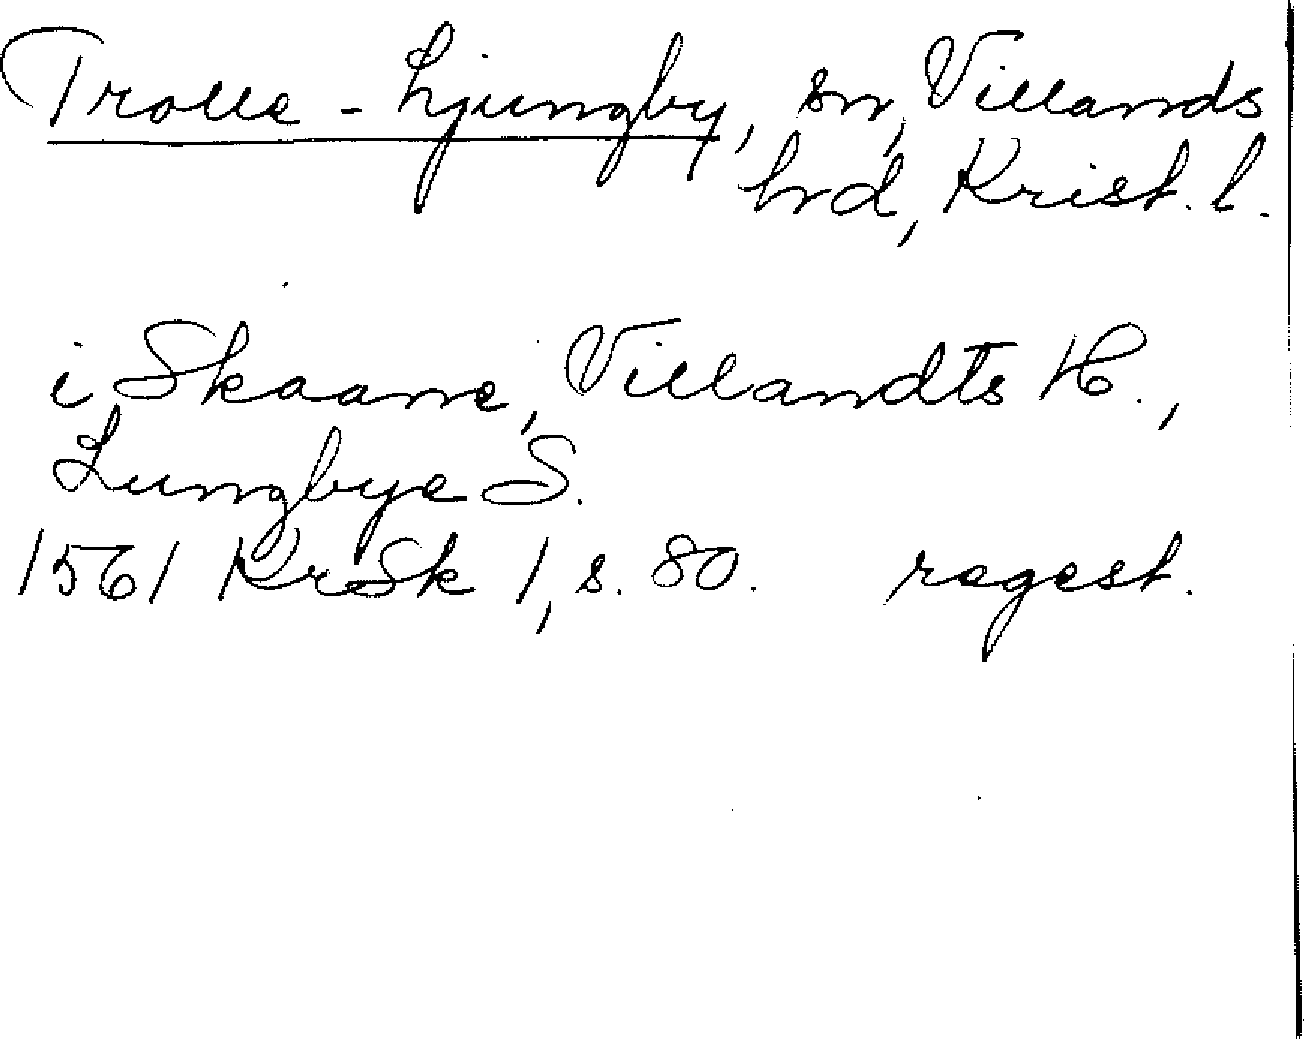 Trolle-Ljungby, sn, Villands
hrd, Krist. l.
i Skaane, Villandts H.,
Lungbye S.
1561 KrSk 1, s. 80. regest.